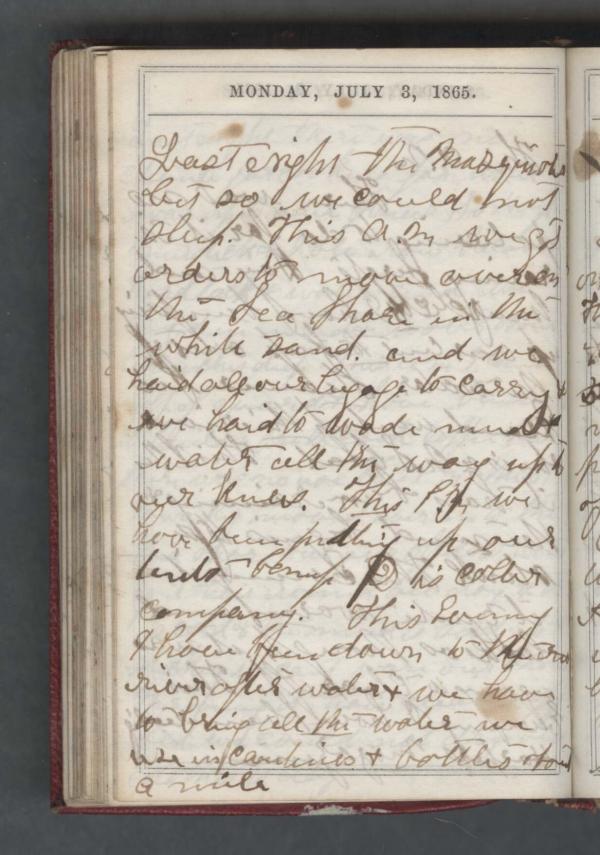 MONDAY, JULY 3, 1865.
Last night the Masquitos
bit so we could not
sleep. This A.M. we got
orders to move over on
the Sea Shore in the
white sand. and we
haid all our lugage to carry &
we haid to wade mud &
water all the way up to
our knees. This P.M. we
have been putting up our
tents
is
company. This Evening
I have been down to the
river after water & we have
to bring all the water we
use in canteens & bottles
a mile